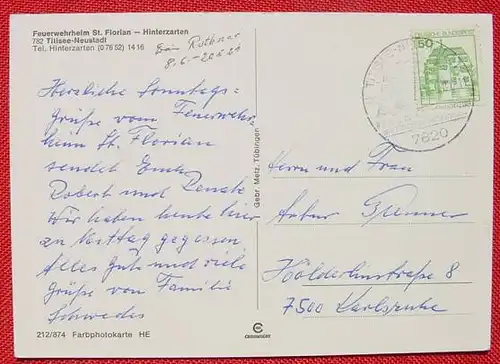 Feuerwehrheim St. Florian — Hinterzarten
782 Titisee-Neustadt
Tel. Hinterzarten (0 76 52) 14 16
Herzliche Sonntags-
grüße vom Feuerwehr-
heim St. Florian
sendet Euch
Robert und Renate
Wir haben heute hier
zu Mittag gegessen
Alles Gute und viele
Grüße von Familie
Schwedes
212/874 Farbphotokarte HE
Gebr. Metz, Tübingen
50
7820
Herrn und Frau
Artur
Hölderlinstraße 8
7500 Karlsruhe